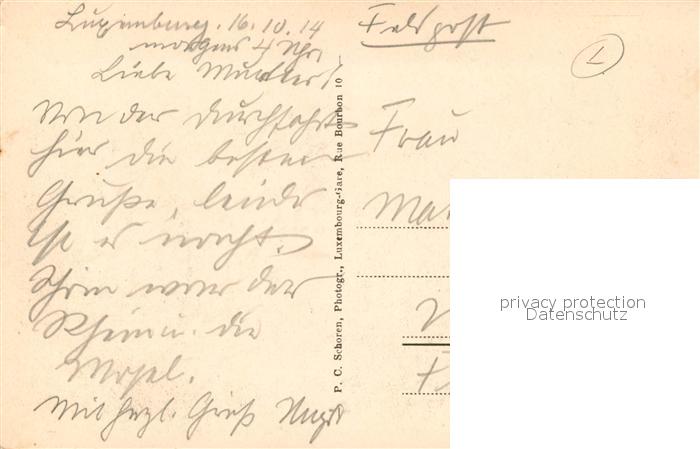 Luxemburg. 16.10.14
morgens 4 Uhr,
Liebe Mutter!
Von der Durchfahrt
hier die besten
Grüße, leider
ist es nacht.
Schön war der
Rhein u. die
Mosel.
Mit herzl. Gruß
P. C. Schoren, Photogr., Luxembourg-Gare, Rue Bourbon 10
Feldpost
L
Frau
privacy protection
Datenschutz